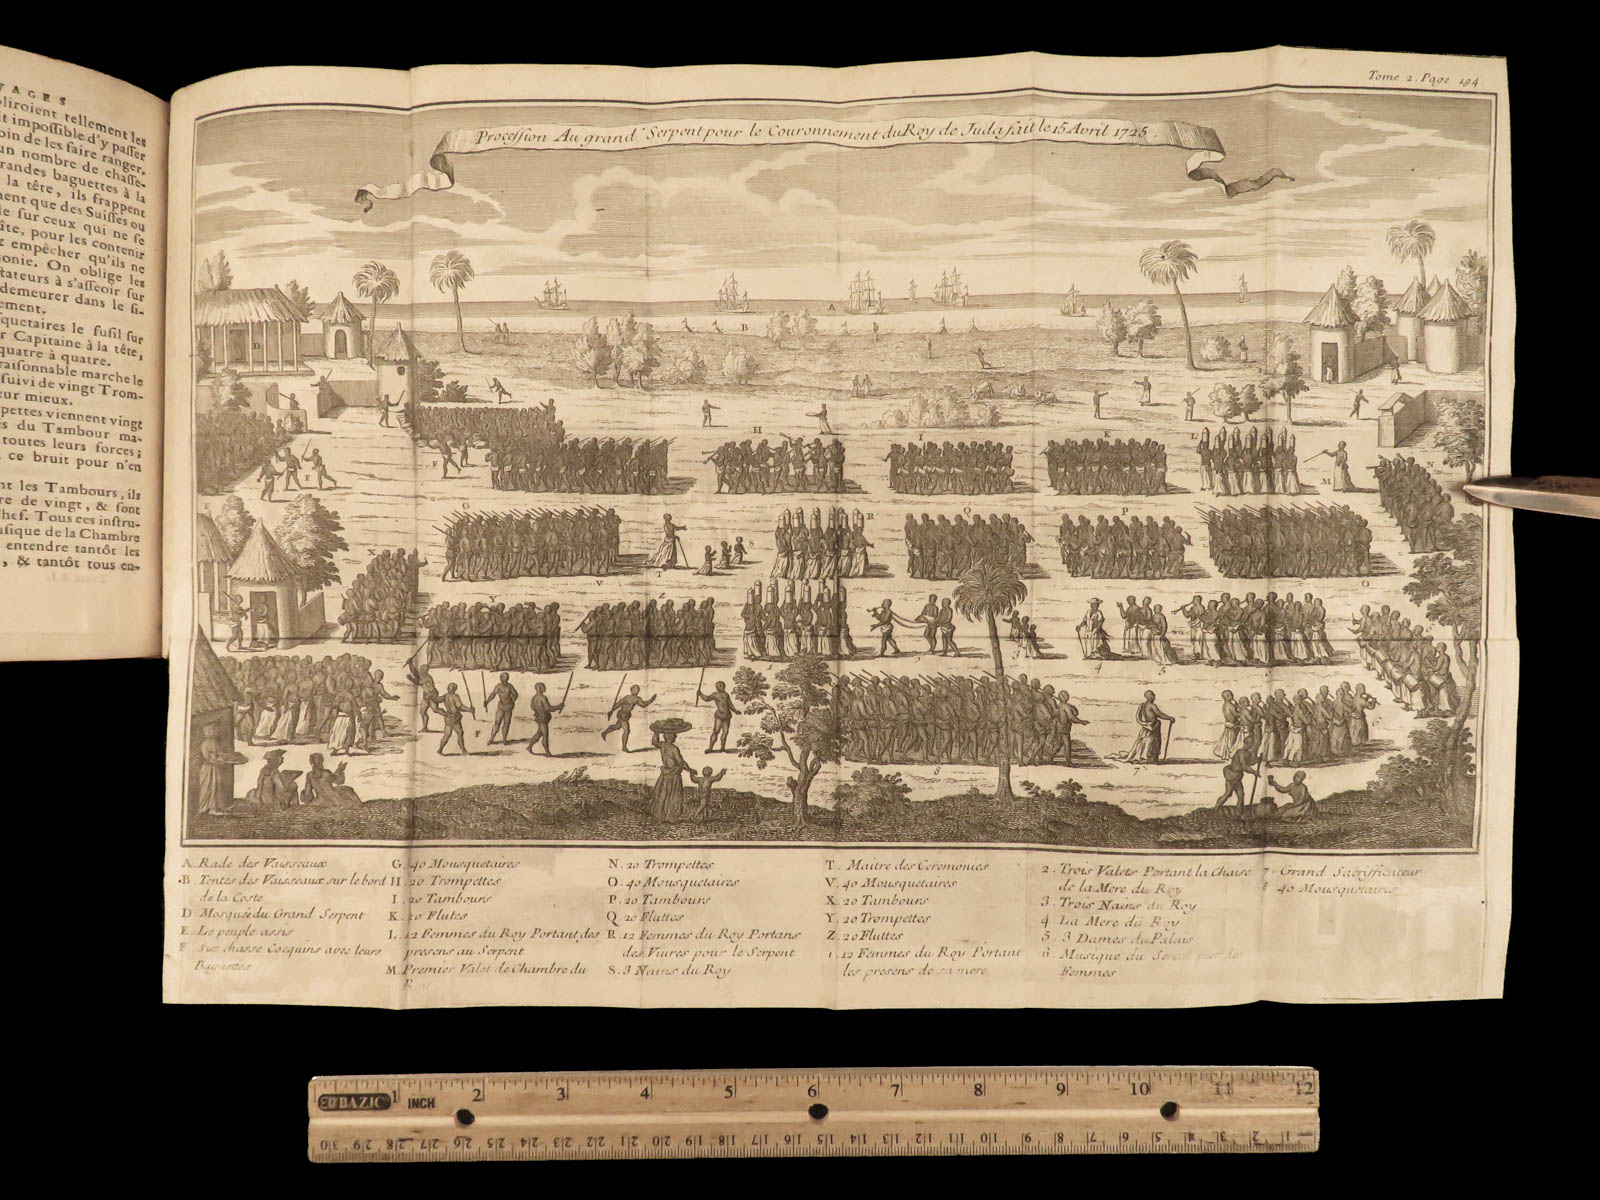 VAGES
pliroient tellement les
t impossible d'y passer
oin de les faire ranger,
un nombre de chasse-
grandes baguettes à la
la tête, ils frappent
ment que des Suisses ou
le sur ceux qui ne se
ûte, pour les contenir
& empêcher qu'ils ne
onie. On oblige les
tateurs à s'asseoir sur
demeurer dans le si-
ement.
quetaires le fusil sur
r Capitaine à la tête,
quatre à quatre.
raisonnable marche le
suivi de vingt Trom-
eur mieux.
pettes viennent vingt
s du Tambour ma-
toutes leurs forces;
ce bruit pour n'en
nt les Tambours, ils
re de vingt, & sont
hef. Tous ces instru-
usique de la Chambre
entendre tantôt les
, & tantôt tous en-
Tome 2. Page 194
Procession Au grand Serpent pour le Couronnement du Roy de Juda fait le 15 Avril 1725.
A Rade des Vaisseaux
B. Tentes des Vaisseaux sur le bord
de la Coste
D Mosquée du Grand Serpent
E. Le peuple assis
F. Six chasse Coequins avec leurs
Baguettes
G. 40 Mousquetaires
H. 20 Trompettes
I. 20 Tambours
K. 20 Flutes
L. 12 Femmes du Roy Portant des
presens au Serpent
M. Premier Valet de Chambre du
N. 20 Trompettes
O. 40 Mousquetaires
P. 20 Tambours
Q. 20 Fluttes
R. 12 Femmes du Roy Portans
des Vivres pour le Serpent
S. 3 Nains du Roy
T. Maitre des Ceremonies
V. 40 Mousquetaires
X. 20 Tambours
Y. 20 Trompettes
Z. 20 Fluttes
1. 12 Femmes du Roy Portant
les presens de sa mere
2. Trois Valets Portant la Chaise
de la Mere du Roy
3. Trois Nains du Roy
4. La Mere du Roy
5. 3 Dames du Palais
6. Musique du Serail par des
Femmes
7 Grand Sacrifficateur
8 40 Mousquetaires
BAZIC 1 INCH 2 3 4 5 6 7 8 9 10 11 12
30 29 28 27 26 25 24 23 22 21 20 19 18 17 16 15 14 13 12 11 10 9 8 7 6 5 4 3 2 1